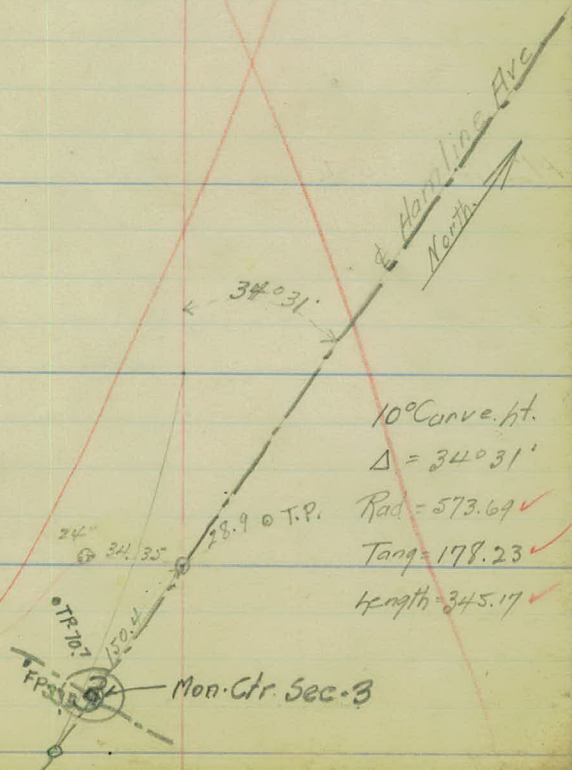 ℄ Hamline Ave
North.
34°31'
10° Curve.ht.
Δ = 34°31'
Rad = 573.69 ✓
Tang = 178.23 ✓
Length = 345.17 ✓
28.9 ⊙ T.P.
24"
34.35
150.4
Mon. Ctr. Sec. 3